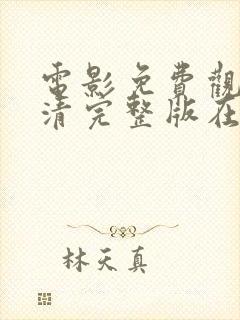 電影免費觀
清完整版在
林天真